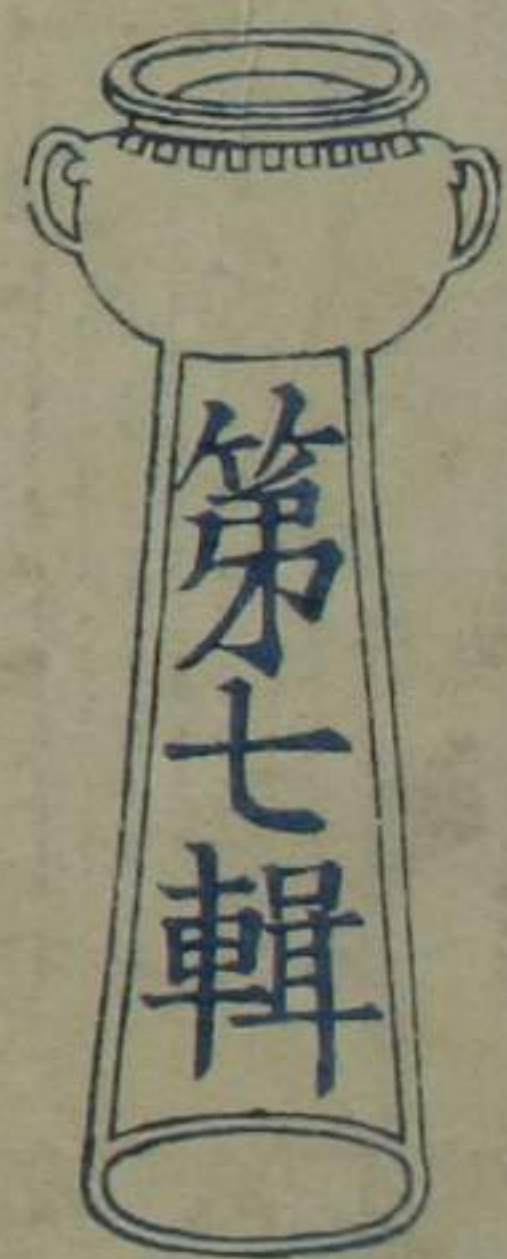 第七輯